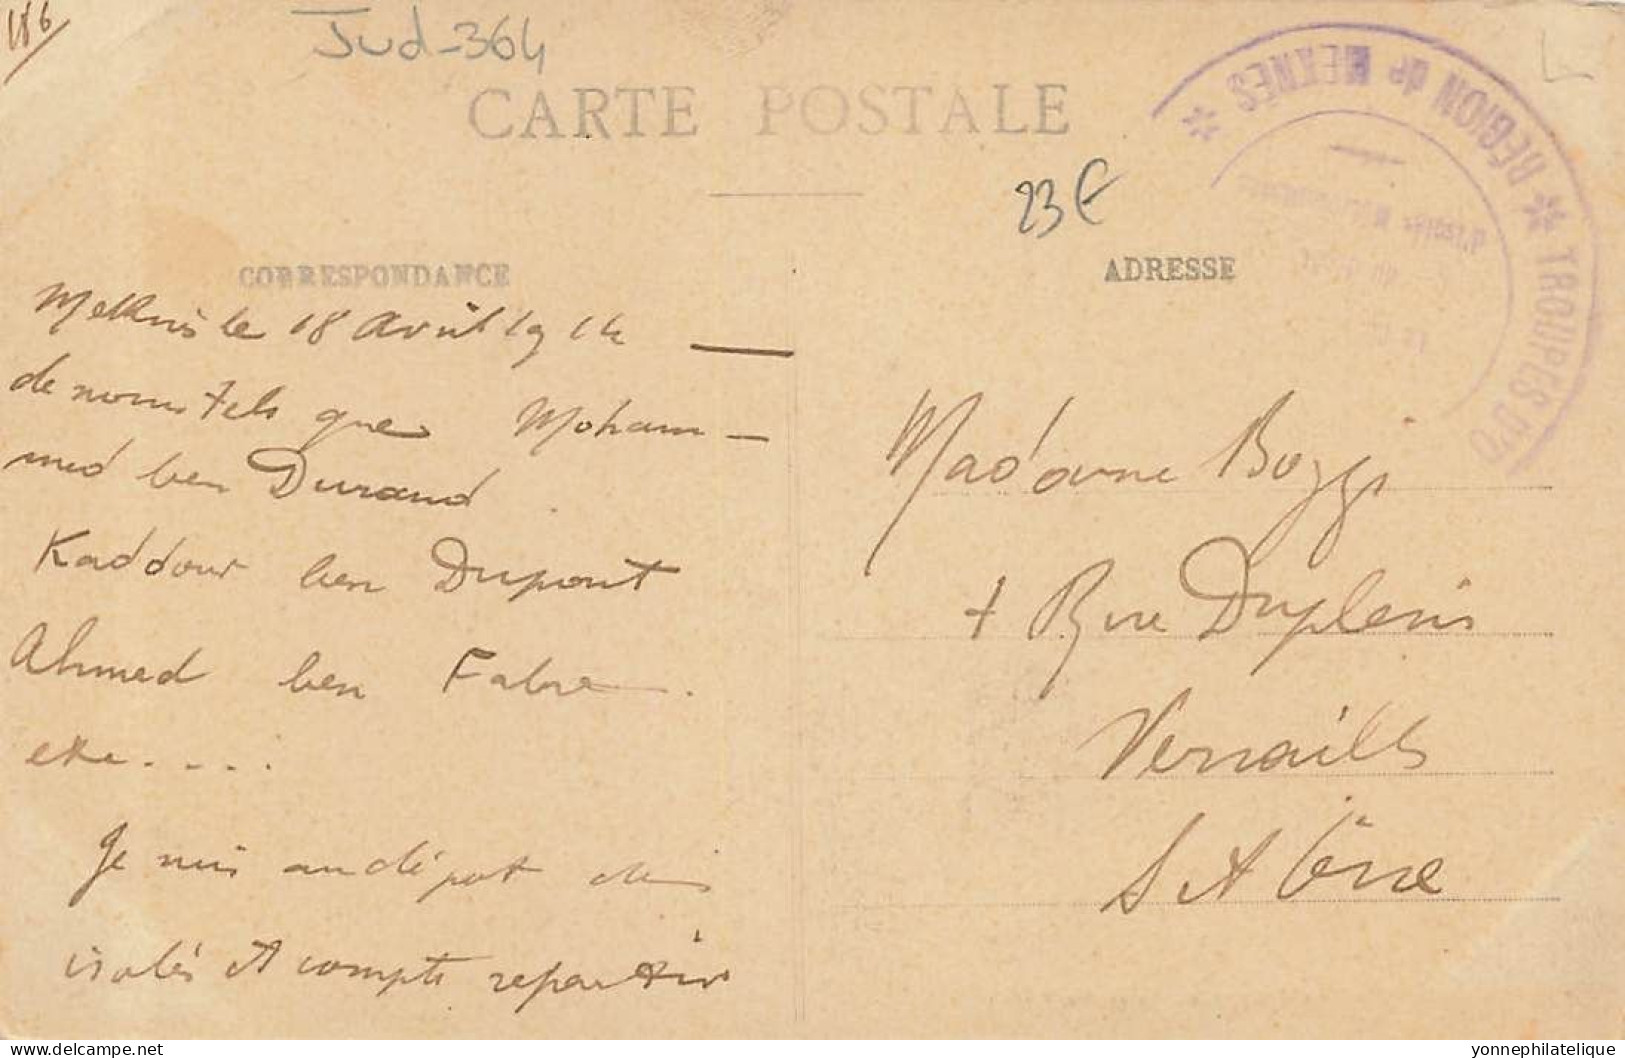 186
Jud-364
CARTE POSTALE
23 €
TROUPES D'O
✻ RÉGION de MEKNÈS ✻
CORRESPONDANCE
ADRESSE
Meknès le 18 Avril 1914
de noms tels que Moham-
med ben Durand
Kaddour ben Dupont
Ahmed ben Fabre.
etc....
Je suis au dépôt des
isolés et compte repartir
Madame Bozzi
7 Rue Duplessis
Versailles
S et Oise
yonnephilatelie
© delcampe.net